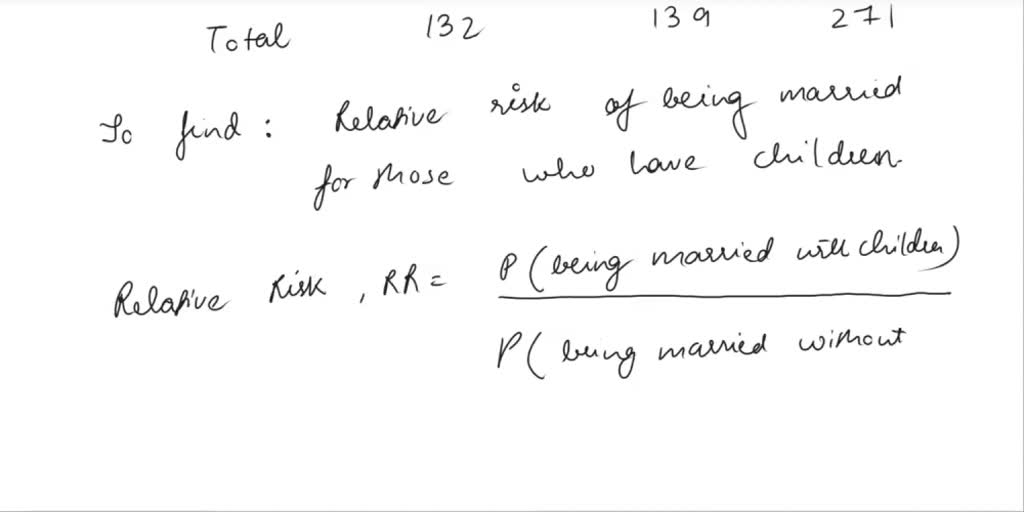 Total 132 139 271
To find : Relative risk of being married
for those who have children
Relative Risk , RR = P ( being married with children )
P ( being married without